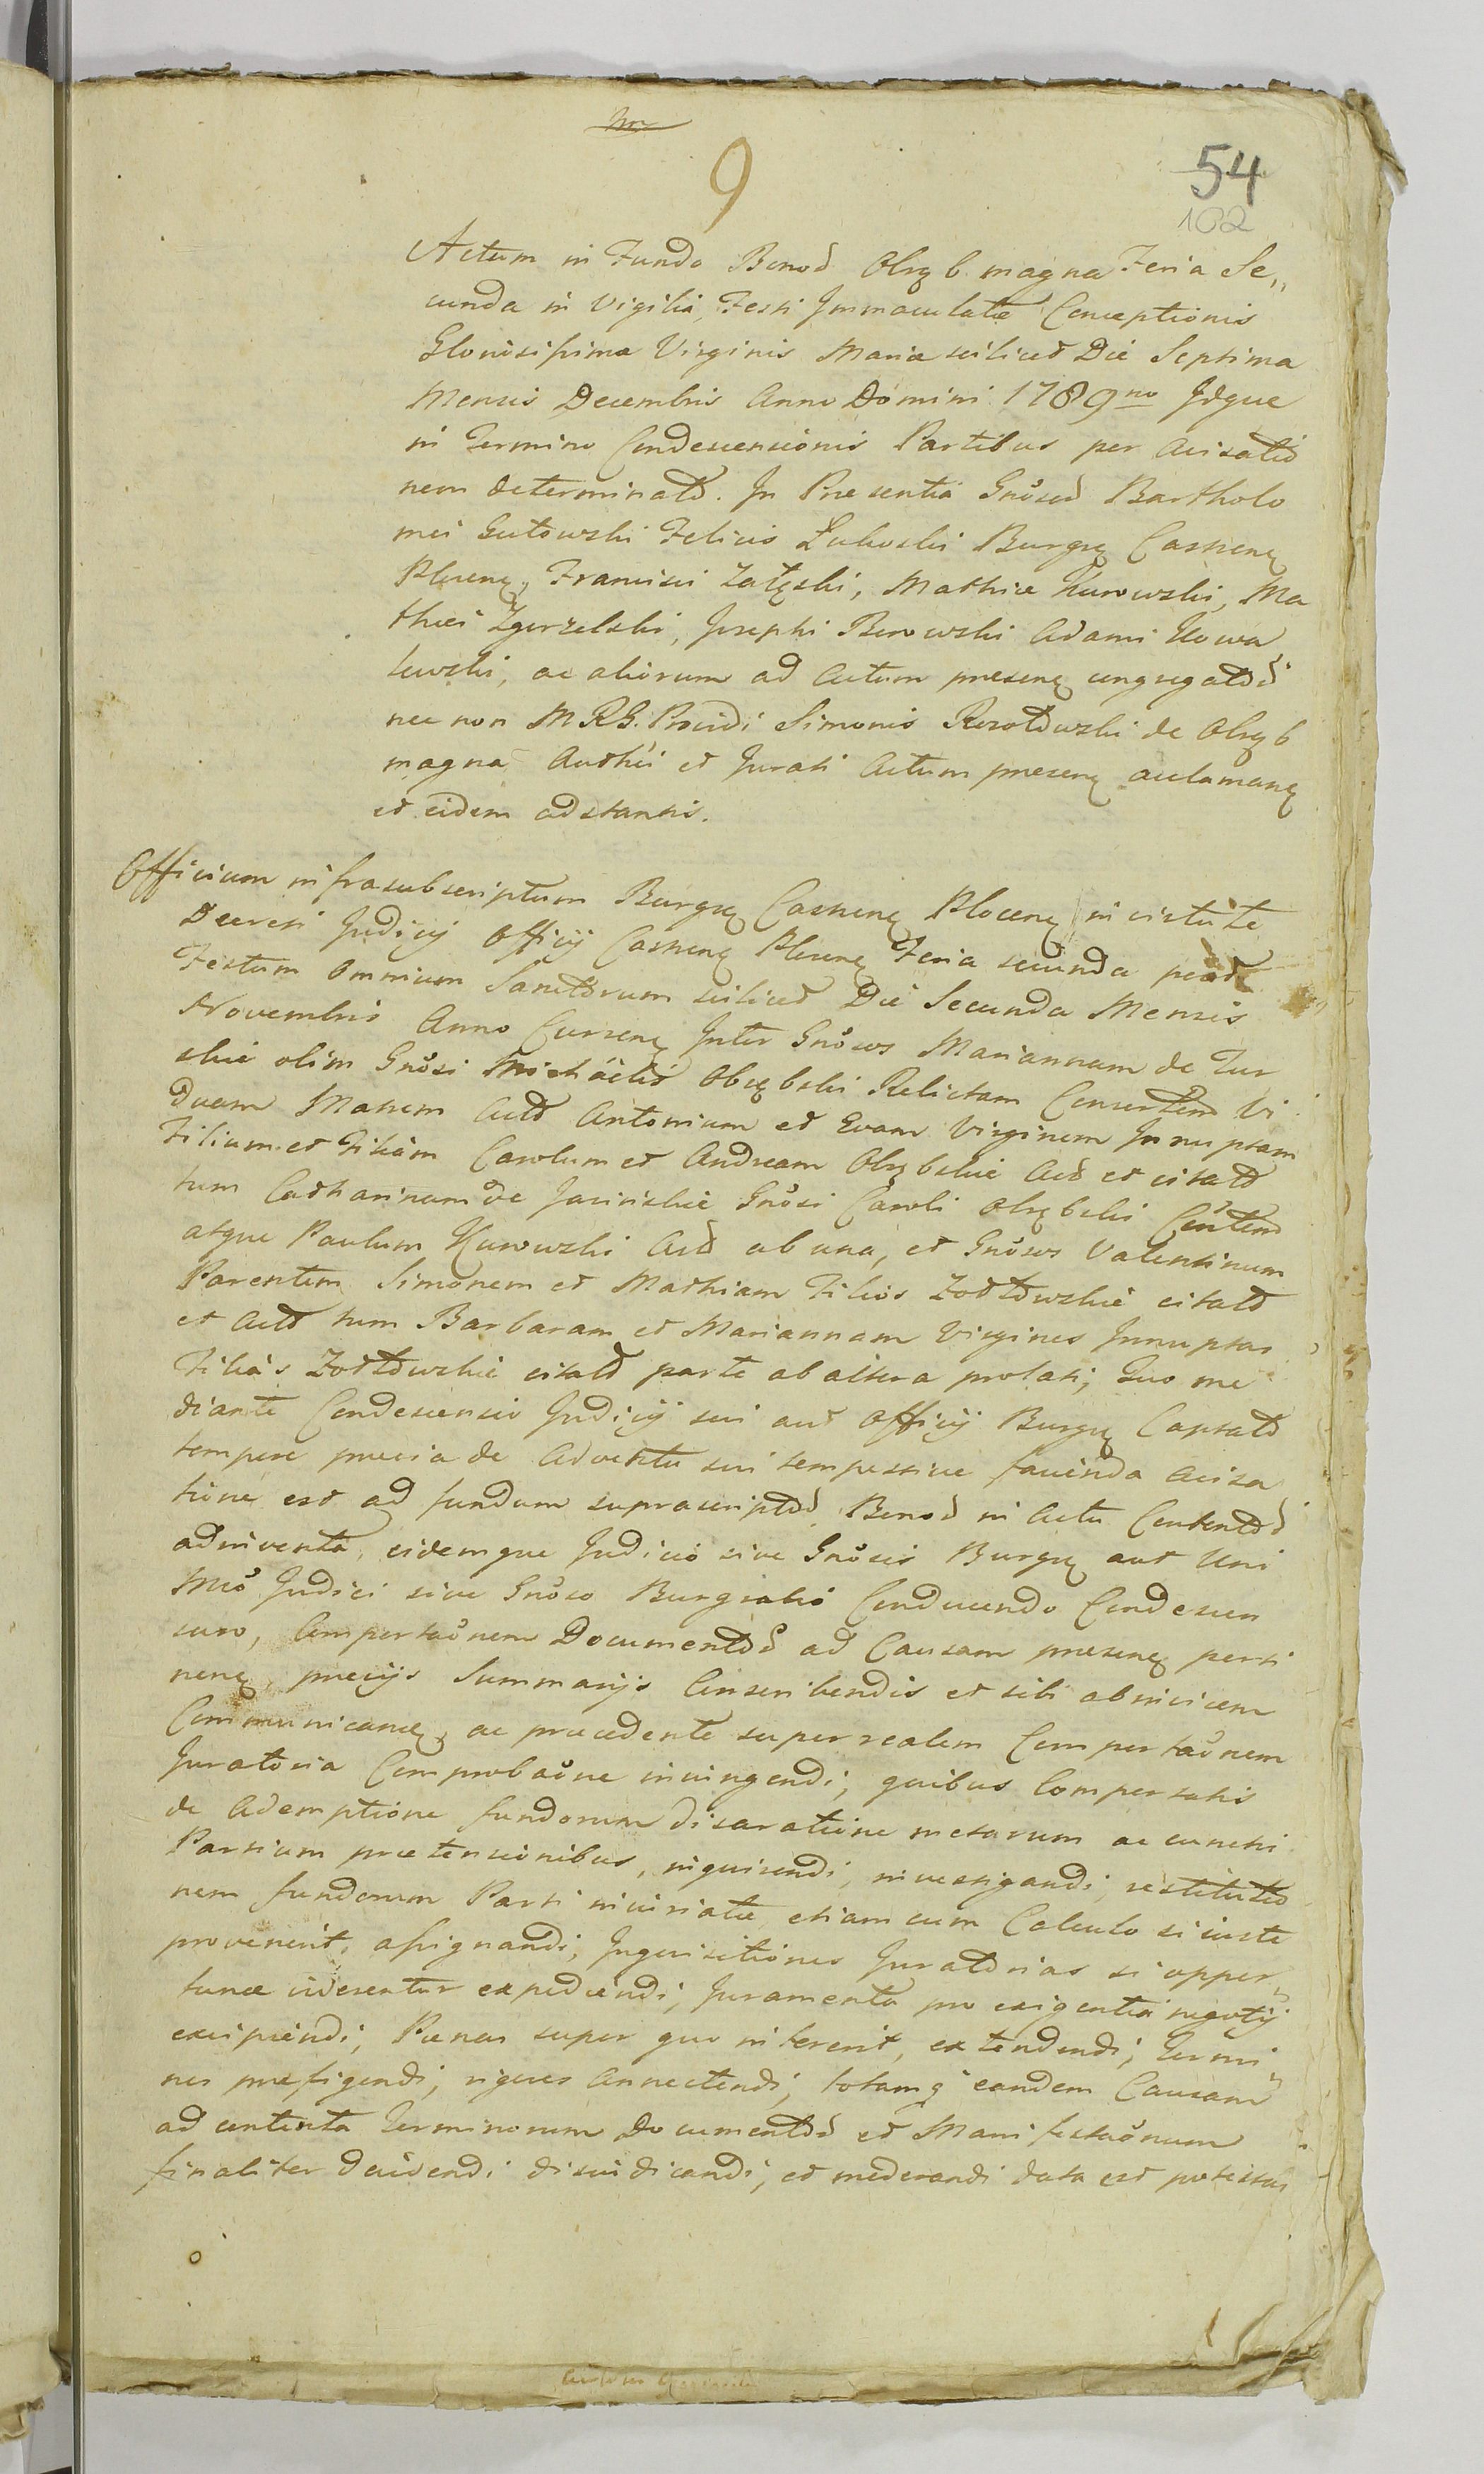 9
54
102
Actum in Fundo Bonoδ Obręb magna Feria Se„
cunda in Vigilia, Festi Immaculatæ Conceptionis
Gloriosissimæ Virginis Mariæ scilicet Die Septima
Mensis Decembris Anno Domini 1789no Idque
in Termino Condescensionis Partibus per Avisatio
nem determinatδ. In Præsentia Gnősoδ Bartholo
mei Gutowski Felicis Lukoski Burgę Castrenę
Plocenę, Francisci Załęski, Mathiæ Kurowski, Ma
thæi Zgorzelski, Josephi Borowski Adami Kowa
lewski, ac aliorum ad Actum præsenę congregatδδ
nec non MRG. Providi Simonis de Obręb
magna et Jurati Actum præsenę acclamanę
et eidem adstantis.
Officium infrasubscriptum Burgę Castrenę Plocenę in vistute
Decreti Judicij Officij Castrenę Plocenę Feria secunda post
Festum Omnium Sanctorum scilicet Die Secunda Mensis
Novembris Anno Currenę Inter Gnősos Mariannam de Tur
skie olim Gnősi Michaëlis Obrębski Relictam Consortem Vi
duam Matrem Actδ Antonium et Evam Virginem Innuptam
Filium et Filiam Carolum et Andream Obrębskie Actδ et citatδ
tum Catharinam de Gnősi Caroli Obrębski Cőntem
atque Paulum Kurowski Actδ ab una, et Gnősos Valentinum
Parentem Simonem et Mathiam Filios Zołtowskie citatδ
et Actδ tum Barbaram et Mariannam Virgines Innuptas
Filias Zołtowskie citatδ parte ab altera prolati; Quo me
diante Condescensio Judicij sui aut Officij Burgę Captatδ
tempore prævia de Adventu sui tempestive facienda Avisa
tione est ad fundum suprascriptδδ Bonoδ in Actu Contentδδ
adinventa, eidemque Judicio sive Gnősis Burgę aut Uni
Mcő Judici sive Gnőso Burgrabio Conducendo Condescen
suro, Comportaőnem Documentδδ ad Causam præsenę perti
nenę, previjs Summarijs Conscribendis et sibi abinvicem
Communicanę, ac præcedente super realem Comportaőnem
Juratoria Comprobaőne iniungendi; quibus Comportatis
de Ademptione fundorum disaratione metarum ac cunctis
Partium prætensionibus, inquirendi, investigandi, restitutio
nem fundorum Parti iniuriatæ, etiam cum Calculo si iuste
provenerit, assignandi, Inquisitiones Juratorias si oppor„
tunæ viderentur expediendi, Juramenta pro exigentia negotij
excipiendi, Pænas super quo intererit, extendendi, Termi
nos præfigendi, rigores Annectendi, totamq̃ eandem Causam
ad contenta Terminorum Documentδδ et Manifestaőnum
finaliter decidendi diiudicandi, et moderandi data est potestas